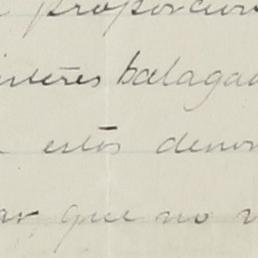 proporcion
interés halaga
estos deno
ar que no